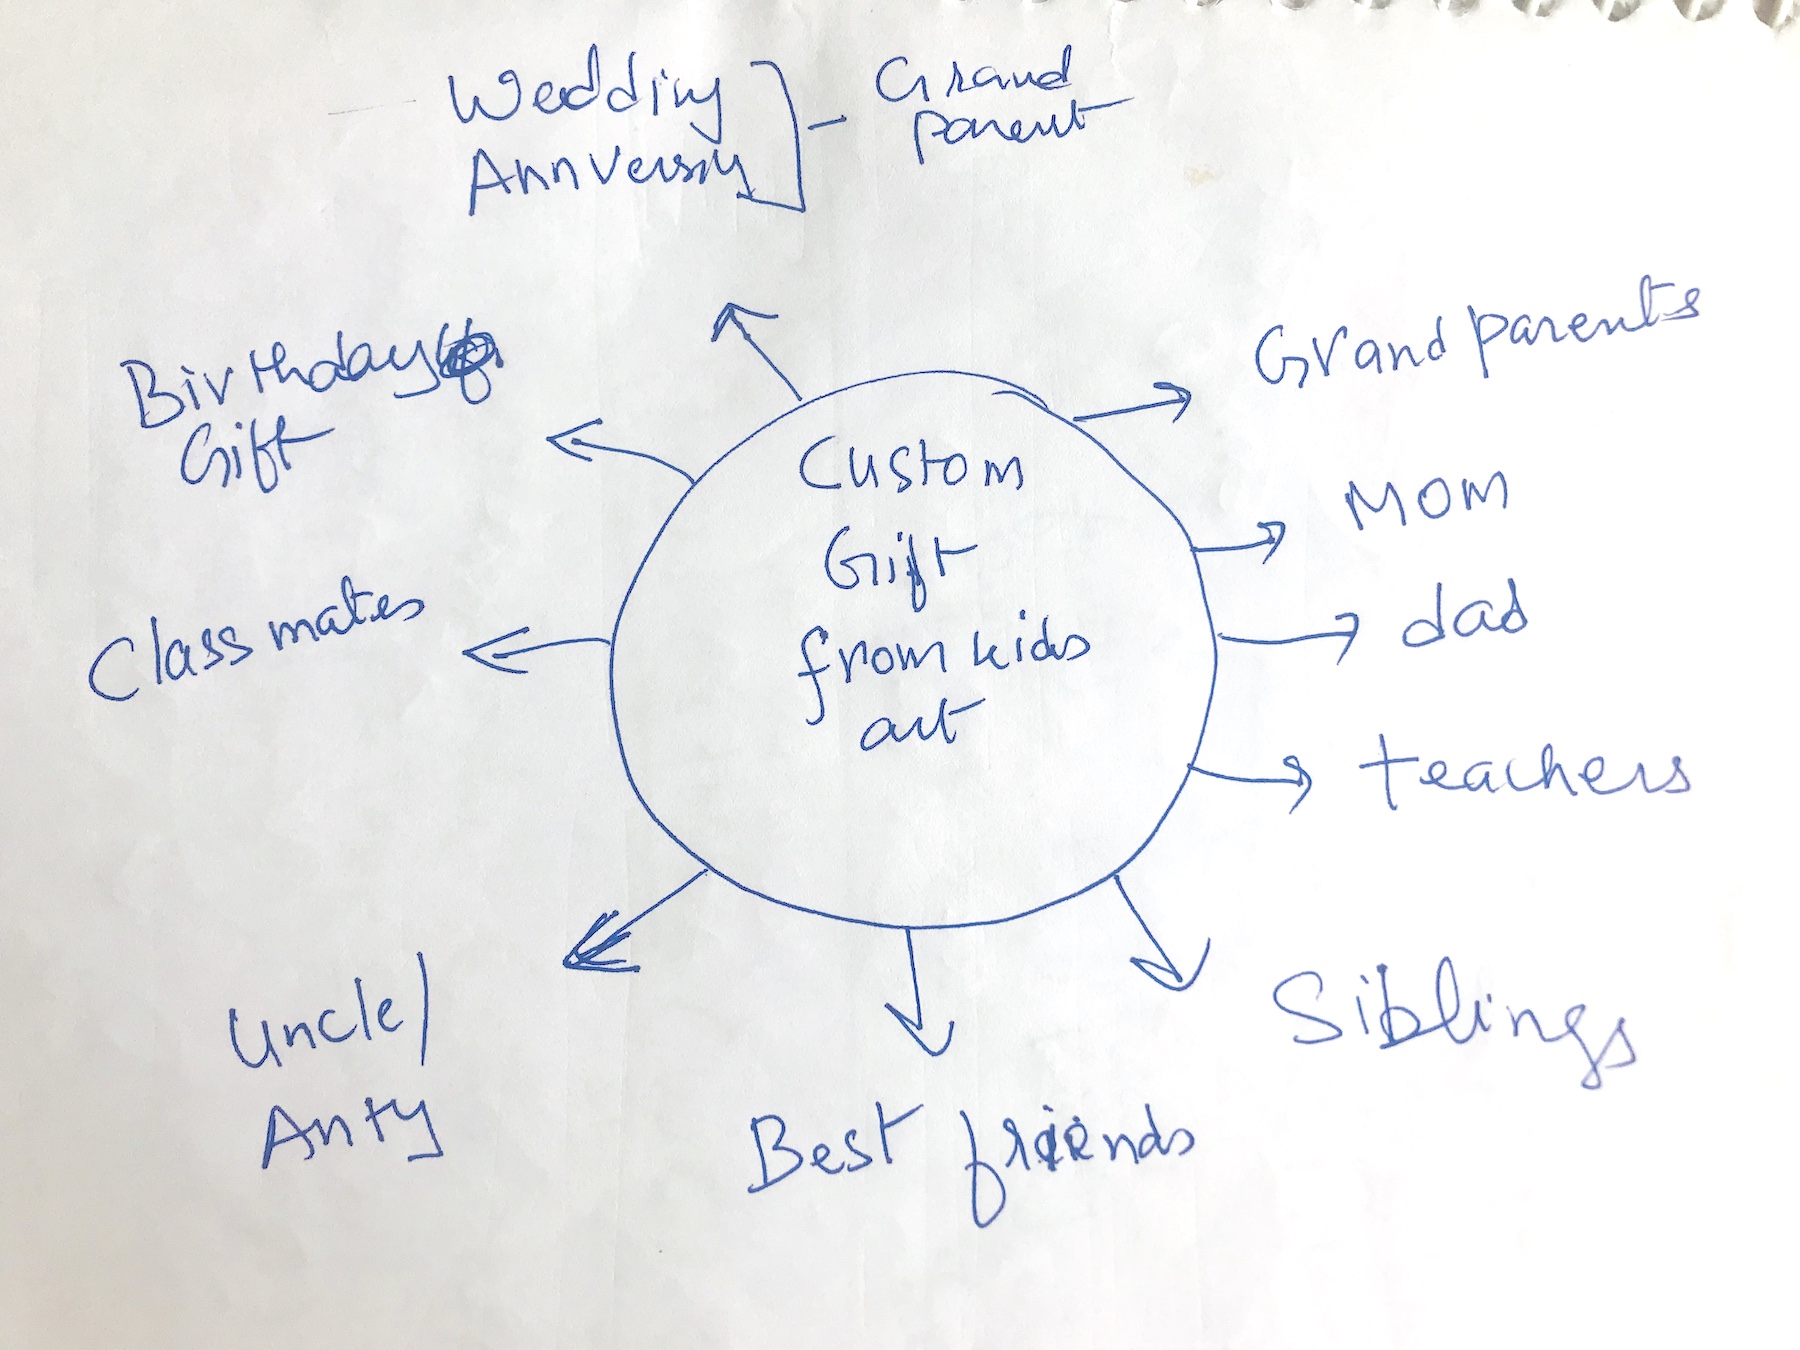 Wedding
Annversry
Grand
parent
Birthday
Gift
Grand parents
Custom
Gift
from kids
art
Mom
dad
Class mates
teachers
Siblings
Uncle/
Anty
Best friends